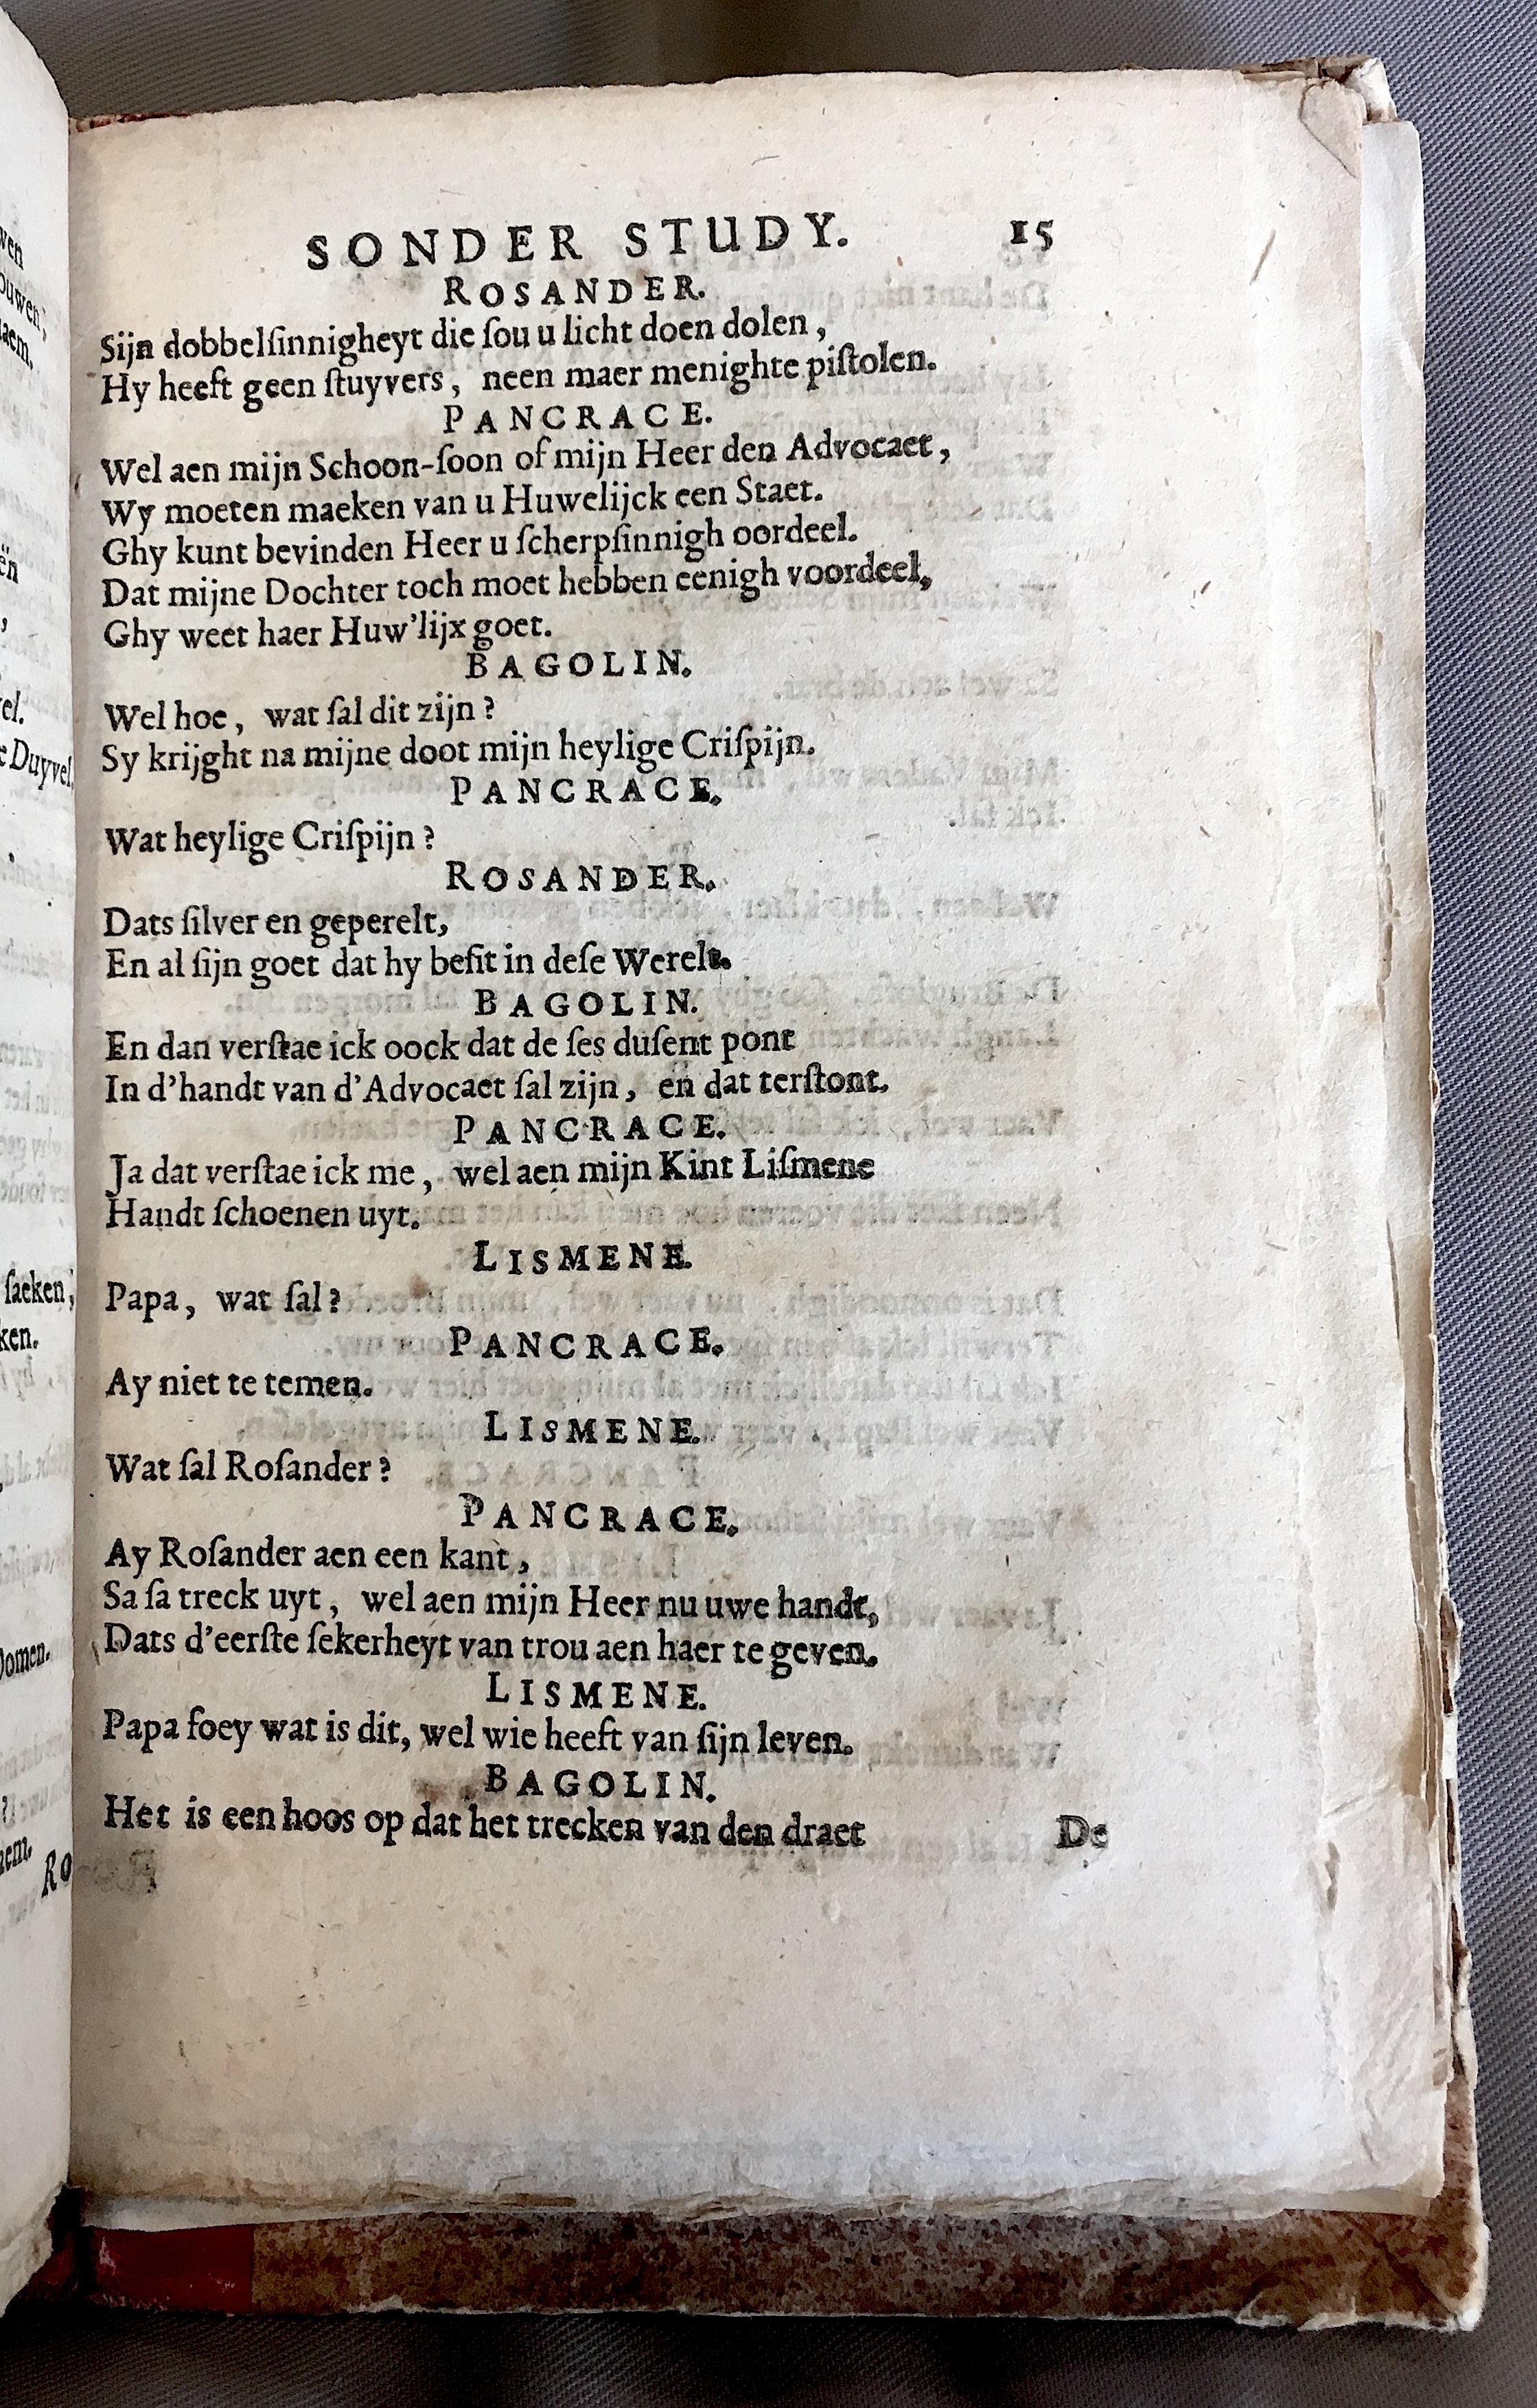 SONDER STUDY. 15
ROSANDER.
Sijn dobbelſinnigheyt die ſou u licht doen dolen,
Hy heeft geen ſtuyvers, neen maer menighte piſtolen.
PANCRACE.
Wel aen mijn Schoon-ſoon of mijn Heer den Advocaet,
Wy moeten maeken van u Huwelijck een Staet.
Ghy kunt bevinden Heer u ſcherpſinnigh oordeel.
Dat mijne Dochter toch moet hebben eenigh voordeel,
Ghy weet haer Huw'lijx goet.
BAGOLIN.
Wel hoe, wat ſal dit zijn?
Sy krijght na mijne doot mijn heylige Criſpijn.
PANCRACE.
Wat heylige Criſpijn?
ROSANDER.
Dats ſilver en geperelt,
En al ſijn goet dat hy beſit in deſe Werelt.
BAGOLIN.
En dan verſtae ick oock dat de ſes duſent pont
In d'handt van d'Advocaet ſal zijn, en dat terſtont.
PANCRACE.
Ja dat verſtae ick me, wel aen mijn Kint Liſmene
Handt ſchoenen uyt.
LISMENE.
Papa, wat ſal?
PANCRACE.
Ay niet te temen.
LISMENE.
Wat ſal Roſander?
PANCRACE.
Ay Roſander aen een kant,
Sa ſa treck uyt, wel aen mijn Heer nu uwe handt,
Dats d'eerſte ſekerheyt van trou aen haer te geven.
LISMENE.
Papa foey wat is dit, wel wie heeft van ſijn leven.
BAGOLIN.
Het is een hoos op dat het trecken van den draet
De